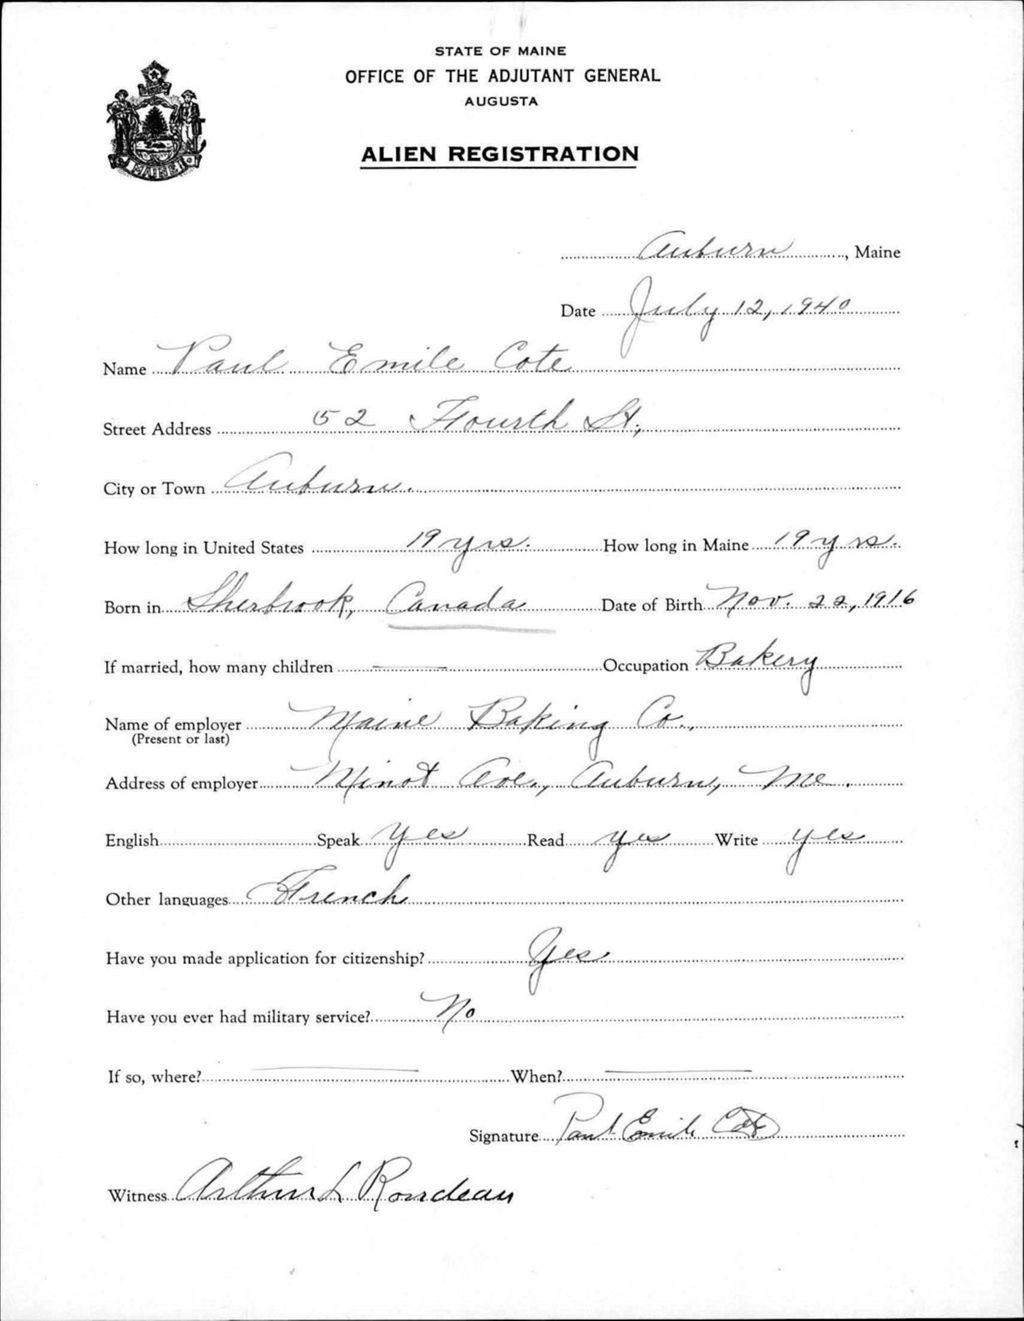 STATE OF MAINE
OFFICE OF THE ADJUTANT GENERAL
AUGUSTA
ALIEN REGISTRATION
MAINE
Auburn, Maine
Date July 12, 1940
Name Paul Emile Cote
Street Address 52 Fourth St.,
City or Town Auburn.
How long in United States 19 yrs. How long in Maine 19 yrs.
Born in Sherbrook, Canada Date of Birth Nov. 22, 1916
If married, how many children — Occupation Bakery
Name of employer Maine Baking Co.,
(Present or last)
Address of employer Minot Ave., Auburn, Me.
English Speak Yes Read yes Write yes
Other languages French
Have you made application for citizenship? Yes
Have you ever had military service? No
If so, where? — When? —
Signature Paul Emile Cote
Witness Arthur L Rondeau